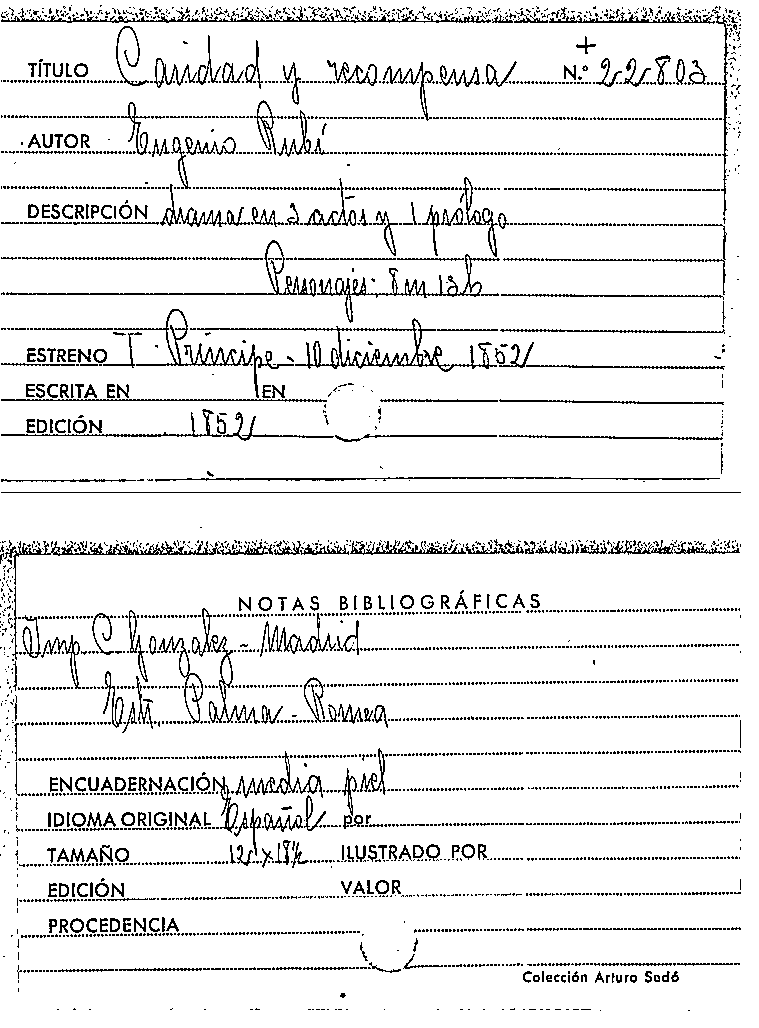 +
TÍTULO Caridad y recompensa N.º 22.803
AUTOR Eugenio Rubí
DESCRIPCIÓN drama en 3 actos y 1 prólogo
Personajes: 8 m 13 h
ESTRENO T. Príncipe - 10 diciembre 1852
ESCRITA EN EN
EDICIÓN 1852
NOTAS BIBLIOGRÁFICAS
Imp C. Gonzalez - Madrid
Estr. Palma - Romea
ENCUADERNACIÓN media piel
IDIOMA ORIGINAL Español por
TAMAÑO 12 x 18½ ILUSTRADO POR
EDICIÓN VALOR
PROCEDENCIA
Colección Arturo Sedó